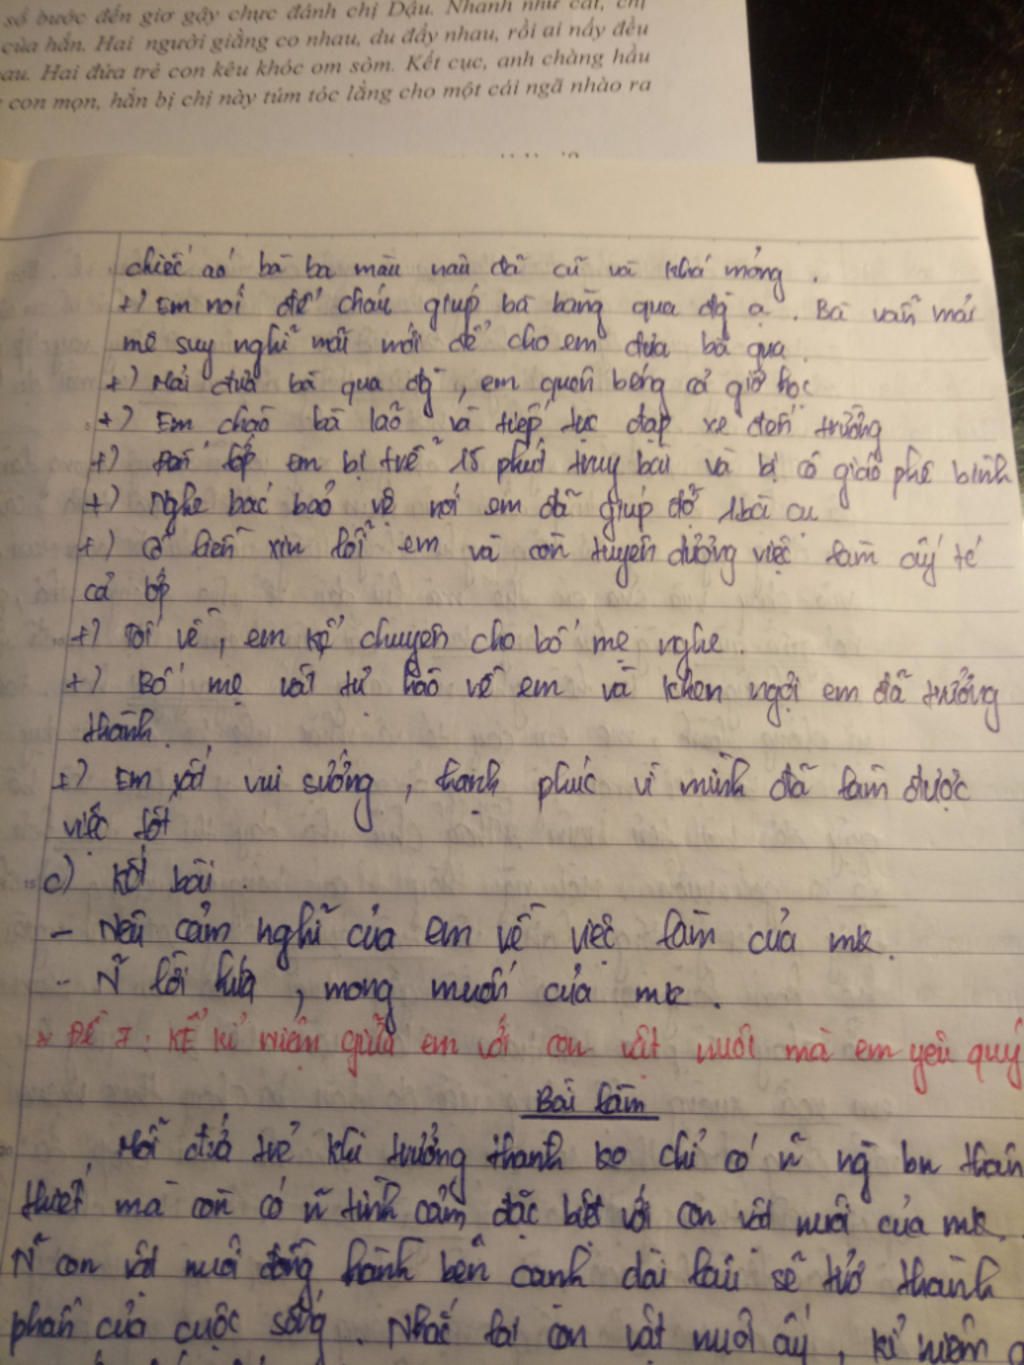 sổ bước đến giơ gậy chực đánh chị Dậu. Nhanh như cắt, chị
của hắn. Hai người giằng co nhau, du đẩy nhau, rồi ai nấy đều
au. Hai đứa trẻ con kêu khóc om sòm. Kết cục, anh chàng hầu
con mọn, hắn bị chị này túm tóc lẳng cho một cái ngã nhào ra
chiếc áo bà ba màu nâu đã cũ và khá mỏng .
+) Em nói để cháu giúp bà băng qua đg ạ . Bà vẫn mải
mê suy nghĩ mãi mới để cho em đưa bà qua
+) Mải đưa bà qua đg , em quên béng cả giờ học
+) Em chào bà lão và tiếp tục đạp xe đến trường
+) Đến lớp em bị trễ 15 phút truy bài và bị cô giáo phê bình
+) Nghe bác bảo vệ nói em đã giúp đỡ 1 bà cụ
+) Cô liền xin lỗi em và còn tuyên dương việc làm ấy tc
cả lớp
+) Tối về , em kể chuyện cho bố mẹ nghe .
+) Bố mẹ rất tự hào về em và khen ngợi em đã trưởng
thành .
+) Em rất vui sướng , hạnh phúc vì mình đã làm được
việc tốt
c) Kết bài .
- Nêu cảm nghĩ của em về việc làm của mk .
- N~ lời hứa , mong muốn của mk .
* Đề 7 : Kể kỉ niệm giữa em với con vật nuôi mà em yêu quý
Bài làm
Mỗi đứa trẻ khi trưởng thành ko chỉ có n~ ng bn thân
thiết mà còn có n~ tình cảm đặc biệt với con vật nuôi của mk .
N~ con vật nuôi đồng hành bên cạnh dài lâu sẽ trở thành
phần của cuộc sống . Nhắc tới con vật nuôi ấy , kỉ niệm